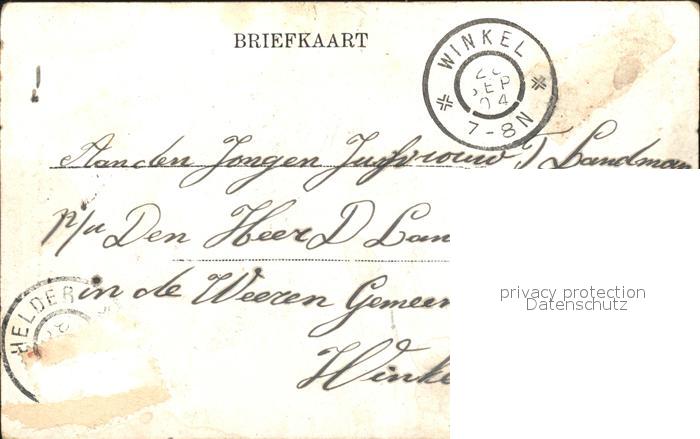 BRIEFKAART
WINKEL
SEP
04
7-8N
Aan den Jongen Juffrouw T Landman
p/a Den Heer D Lan
in de Weeren Gemeen
Winke
HELDER
privacy protection
Datenschutz